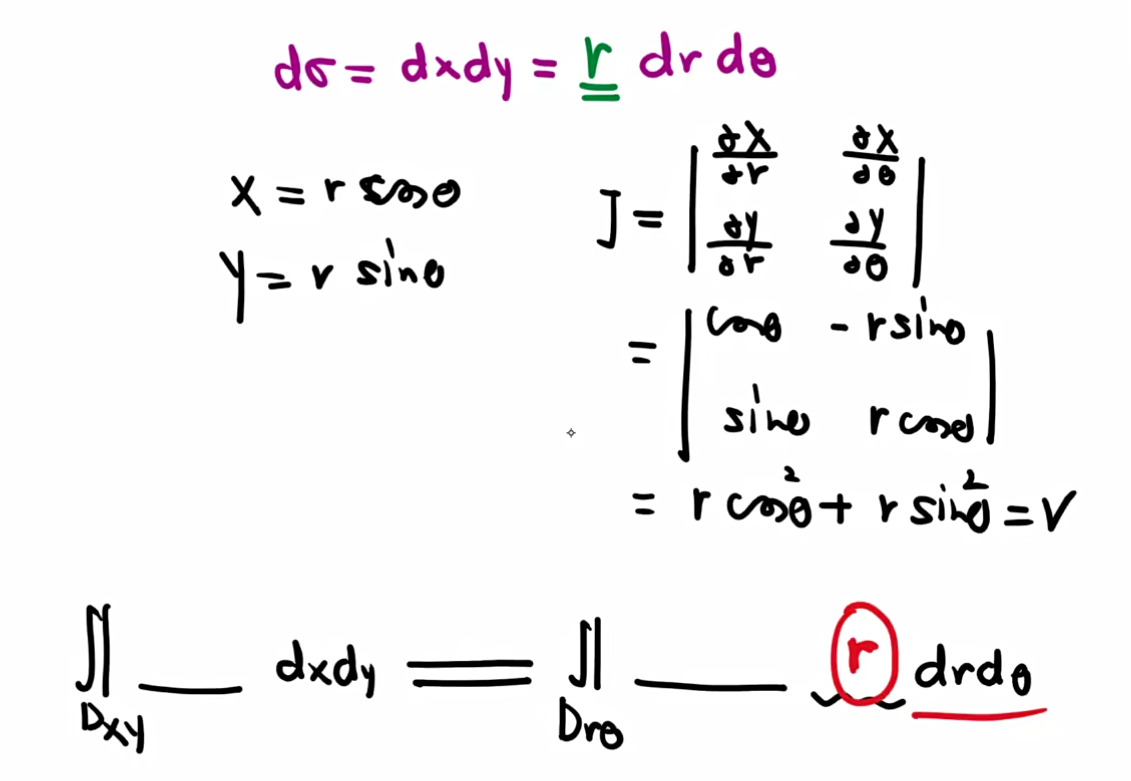 dσ = dxdy = r dr dθ
x = r cosθ
y = r sinθ
J = | ∂x/∂r ∂x/∂θ |
| ∂y/∂r ∂y/∂θ |
= | cosθ - r sinθ |
| sinθ r cosθ |
= r cos²θ + r sin²θ = r
∬ ___ dxdy = ∬ ___ r drdθ
Dxy Drθ